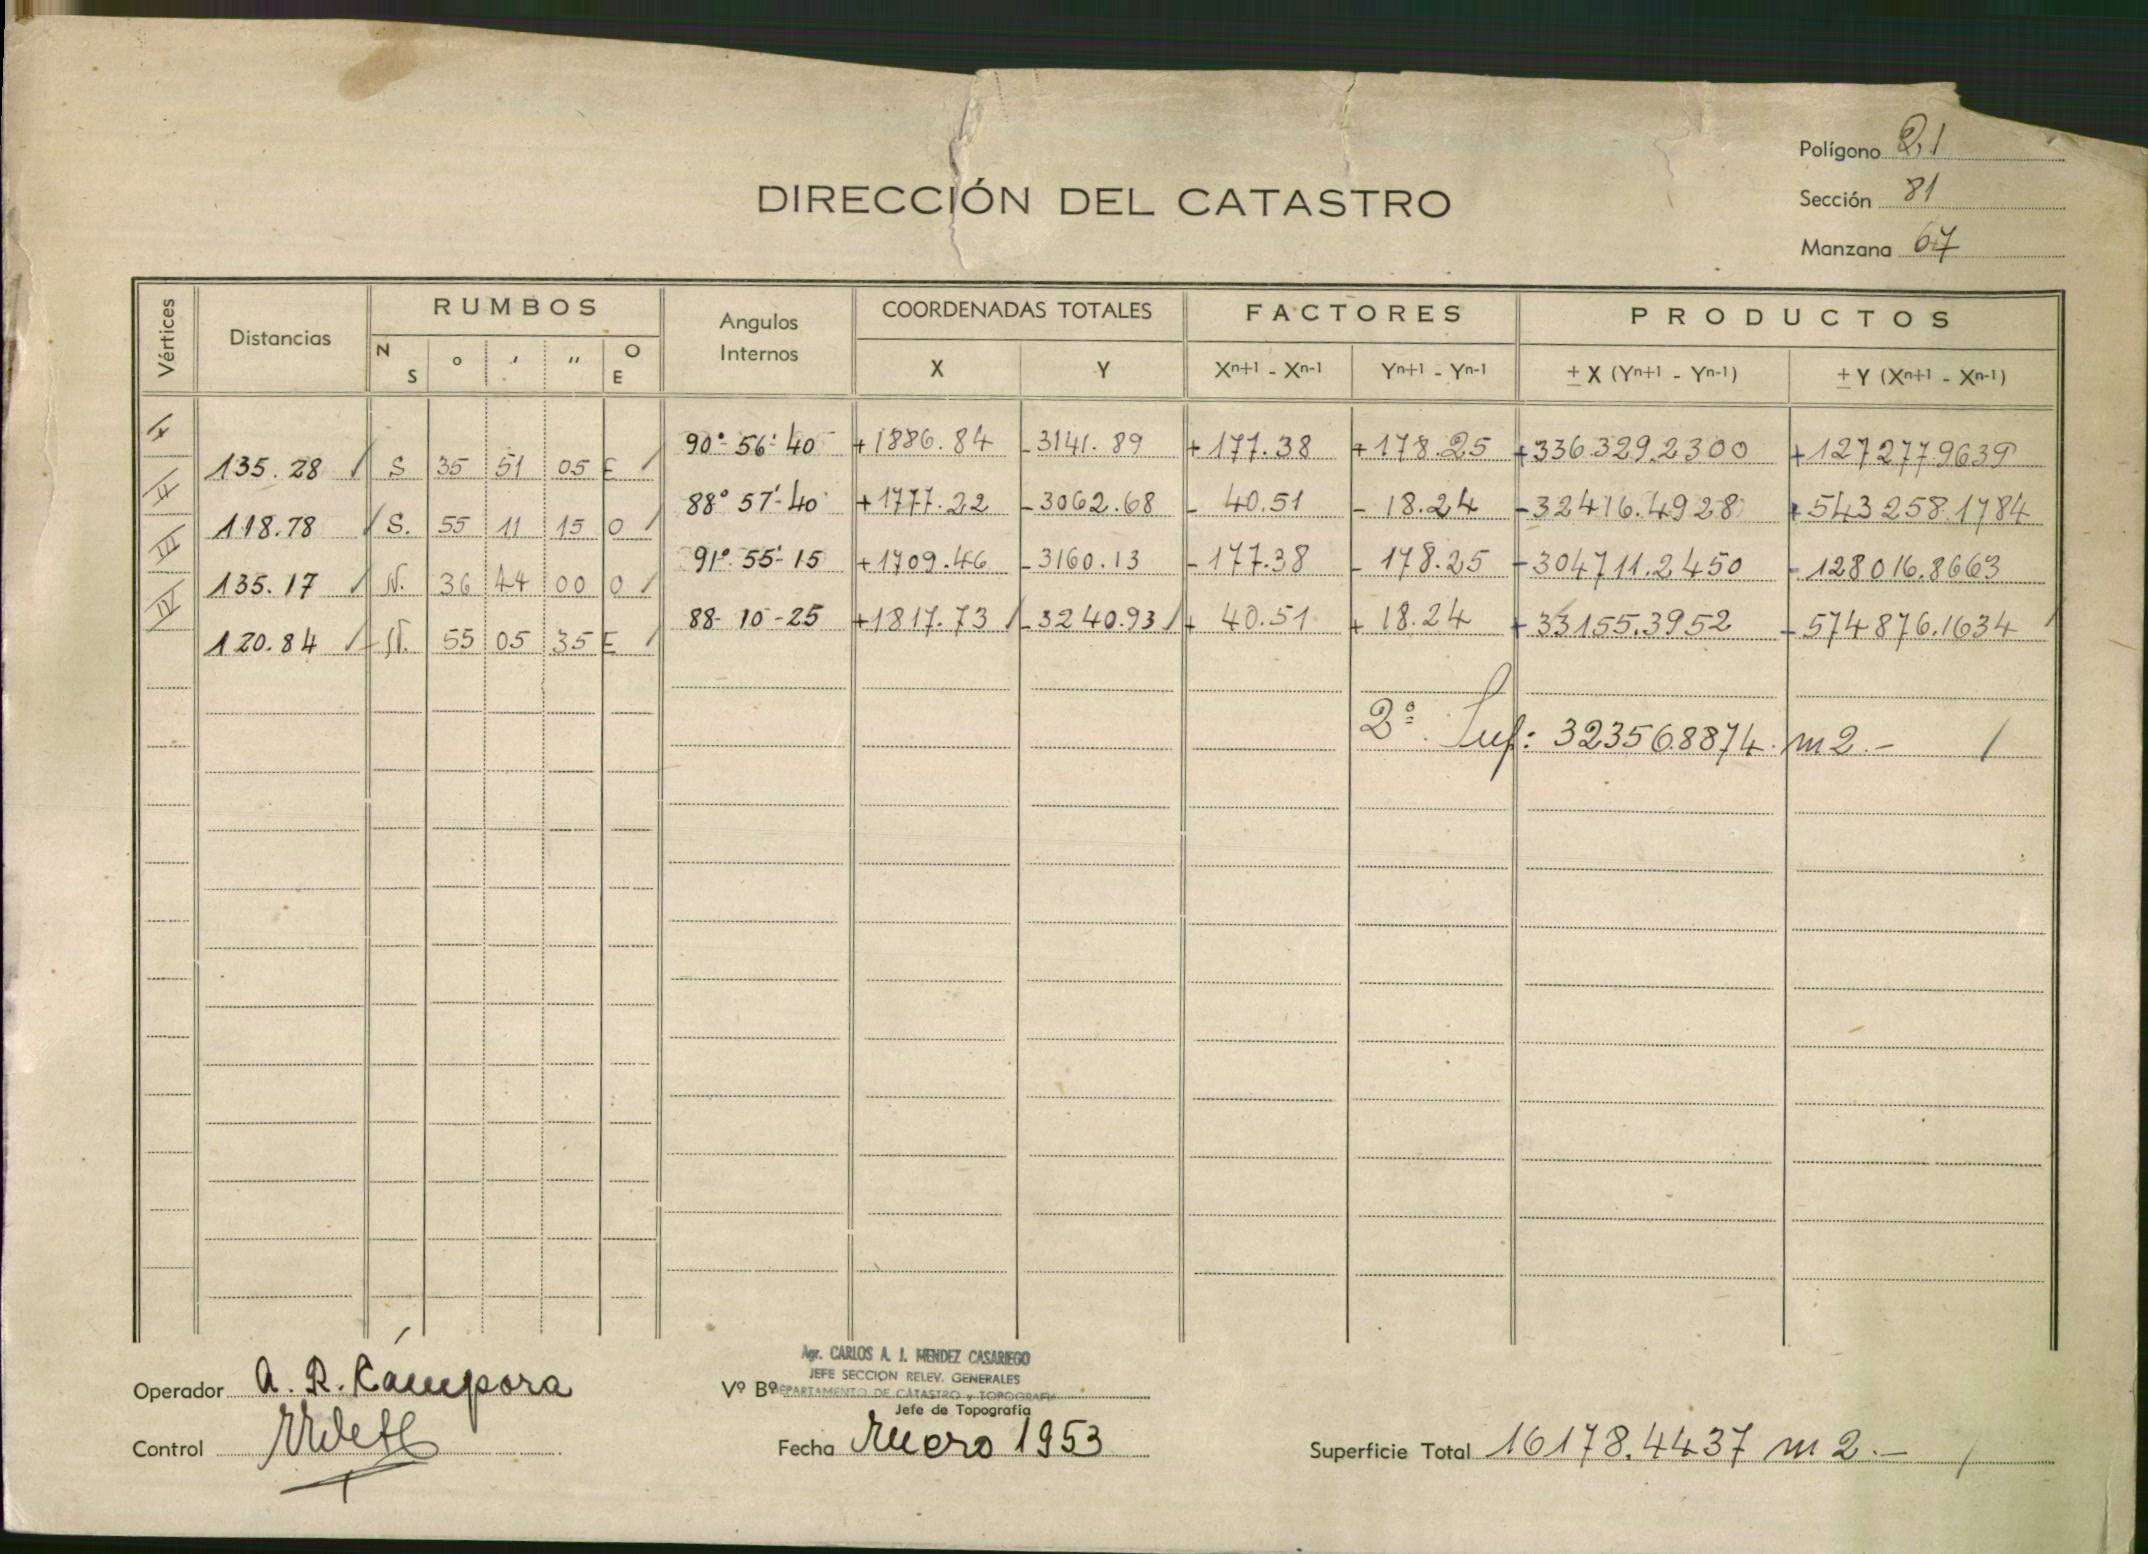 Polígono 21
DIRECCIÓN DEL CATASTRO
Sección 81
Manzana 67
Vértices Distancias RUMBOS Angulos Internos COORDENADAS TOTALES FACTORES PRODUCTOS
N S o ′ ″ O E X Y Xn+1 - Xn-1 Yn+1 - Yn-1 ± X (Yn+1 - Yn-1) ± Y (Xn+1 - Xn-1)
I 90°-56'-40 +1886.84 -3141.89 +177.38 +178.25 +336.329.2300 +127277.9639
135.28 / S 35 51 05 E /
II 88° 57'-40 +1777.22 -3062.68 - 40.51 - 18.24 -32416.4928 +543258.1784
118.78 / S. 55 11 15 O /
III 91°-55'-15 +1709.46 -3160.13 -177.38 - 178.25 -304711.2450 -128016.8663
135.17 / N. 36 44 00 O /
IV 88-10-25 +1817.73 / -3240.93 / + 40.51 + 18.24 +33155.3952 -574876.1634 /
120.84 / N. 55 05 35 E /
2ª Sup: 32356.8874 m2.- /
Agr. CARLOS A. J. MENDEZ CASARIEGO
JEFE SECCION RELEV. GENERALES
Operador A. R. Cámpora Vº Bº DEPARTAMENTO DE CATASTRO y TOPOGRAFIA
Jefe de Topografía
Control Fecha Enero 1953 Superficie Total 16178.4437 m2.- /